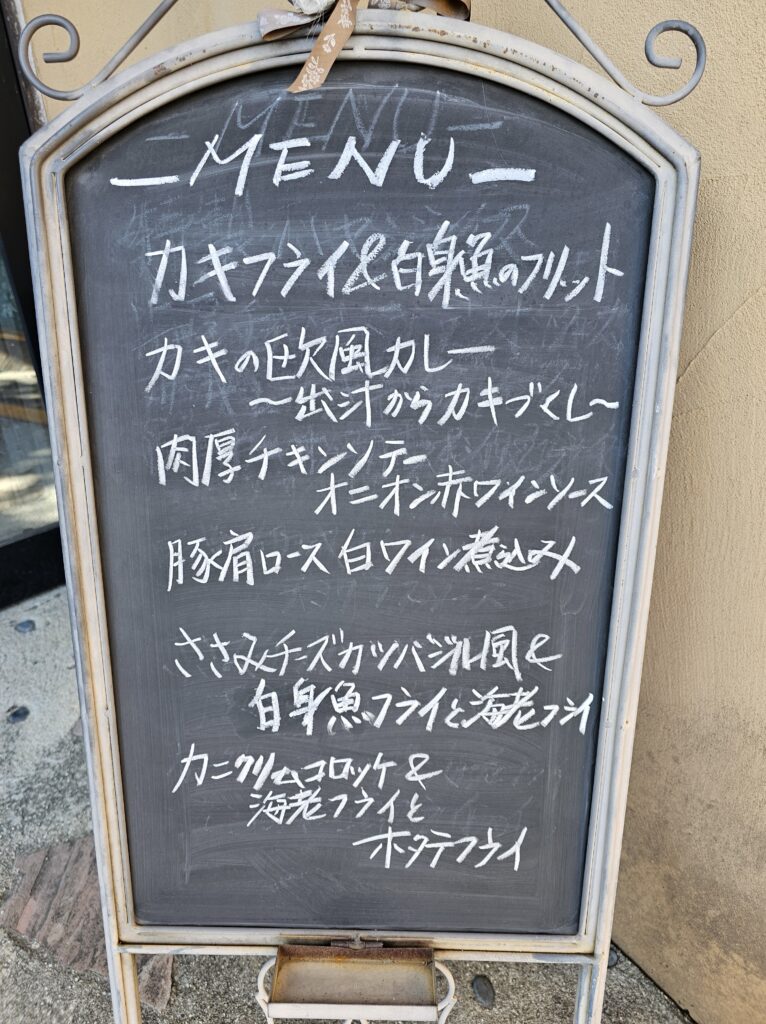 -MENU-
カキフライ&白身魚のフリット
カキの欧風カレー
～出汁からカキづくし～
肉厚チキンソテー
オニオン赤ワインソース
豚肩ロース白ワイン煮込み
ささみチーズカツバジル風&
白身魚フライと海老フライ
カニクリームコロッケ&
海老フライと
ホタテフライ